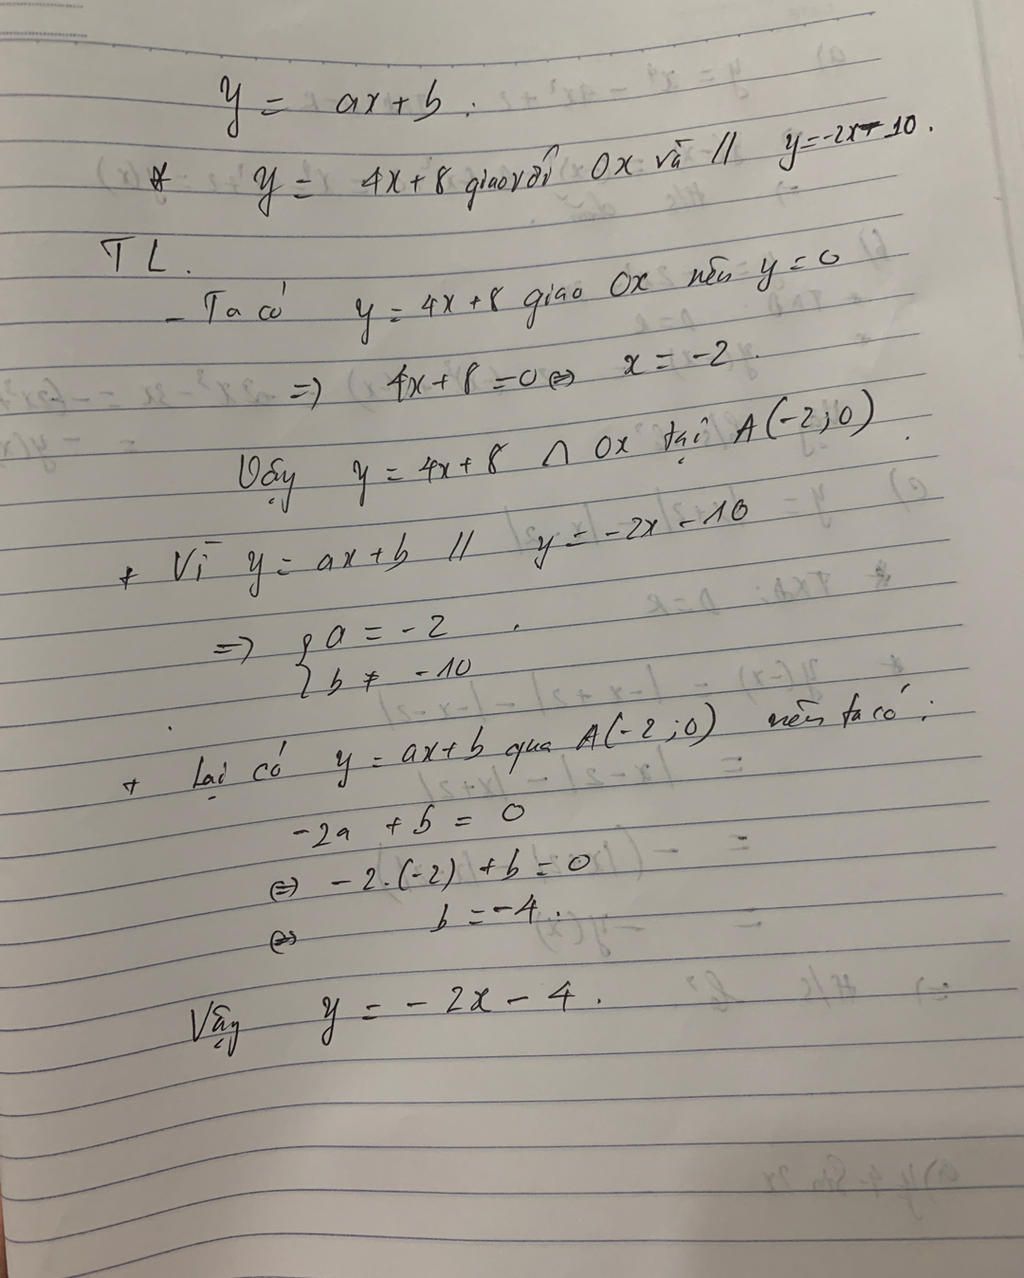 y = ax + b.
* y = 4x + 8 giao với Ox và // y = -2x - 10.
TL.
- Ta có y = 4x + 8 giao Ox nên y = 0
=> 4x + 8 = 0 <=> x = -2.
Vậy y = 4x + 8 ∩ Ox tại A(-2; 0).
+ Vì y = ax + b // y = -2x - 10
=> { a = -2
b ≠ -10
+ Lại có y = ax + b qua A(-2; 0) nên ta có:
-2a + b = 0
<=> -2.(-2) + b = 0
<=> b = -4.
Vậy y = -2x - 4.